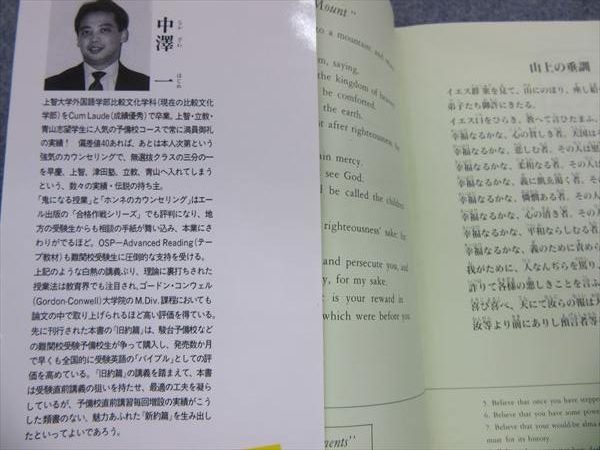 中澤 一
なか ざわ はじめ
上智大学外国語学部比較文化学科(現在の比較文化
学部)をCum Laude(成績優秀)で卒業。上智・立教・
青山志望学生に人気の予備校コースで常に満員御礼
の実績! 偏差値40あれば、あとは本人次第という
強気のカウンセリングで、無選抜クラスの三分の一
を早慶、上智、津田塾、立教、青山へ入れてしまう
という、数々の実績・伝説の持ち主。
「鬼になる授業」と「ホンネのカウンセリング」はエー
ル出版の「合格作戦シリーズ」でも評判になり、地
方の受験生からも相談の手紙が舞い込み、本業にさ
わりがでるほど。OSP—Advanced Reading(テー
プ教材)も難関校受験生に圧倒的な支持を受ける。
上記のような白熱の講義ぶり、理論に裏打ちされた
授業法は教育界でも注目され、ゴードン・コンウェル
(Gordon-Conwell)大学院のM.Div.課程においても
論文の中で取り上げられるほど高い評価を得ている。
先に刊行された本書の「旧約篇」は、駿台予備校など
の難関校受験予備校生が争って購入し、発売数か月
で早くも全国的に受験英語の「バイブル」としての評
価を高めている。「旧約篇」の講義を踏まえて、本書
は受験直前講義の狙いを持たせ、最適の工夫を凝ら
しているが、予備校直前講習毎回増設の実績がこう
した類書のない、魅力あふれた「新約篇」を生み出し
たといってよいであろう。
Mount"
to a mountain: and when
, saying,
the kingdom of heaven.
be comforted.
the earth.
st after righteousness: for
in mercy.
see God.
l be called the children
righteousness' sake: for
and persecute you, and
y, for my sake.
is your reward in
which were before you
ments"
山上の垂訓
イエス群衆を見て、山にのぼり、座し給
弟子たち御許にきたる。
イエス口をひらき、教へて言ひたまふ、
幸福なるかな、心の貧しき者。天国は
幸福なるかな、悲しむ者。その人は
幸福なるかな、柔和なる者。その人は
幸福なるかな、義に飢ゑ渇く者。
幸福なるかな、憐憫ある者。その
幸福なるかな、心の清き者。その
幸福なるかな、平和ならしむる者。
幸福なるかな、義のために責め
我がために、人なんぢらを罵り、
詐りて各様の悪しきことを言ふ
喜び喜べ、天にて汝らの報は
汝等より前にありし預言者等
5. Believe that once you have stepped
6. Believe that you have some power
7. Believe that your would-be alma
must for its history.